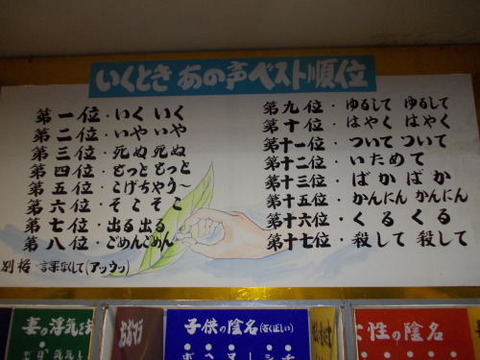 いくとき あの声ベスト順位
第一位・いく いく
第二位・いや いや
第三位・死ぬ 死ぬ
第四位・もっと もっと
第五位・こげちゃう〜
第六位・そこ そこ
第七位・出る 出る
第八位・ごめんごめん
別格 言葉なくして(アッウッ)
第九位・ゆるして ゆるして
第十位・はやく はやく
第十一位・ついて ついて
第十二位・いためて
第十三位・ばか ばか
第十五位・かんにん かんにん
第十六位・くる くる
第十七位・殺して 殺して
妻の浮気
子供の陰名
女性の陰名